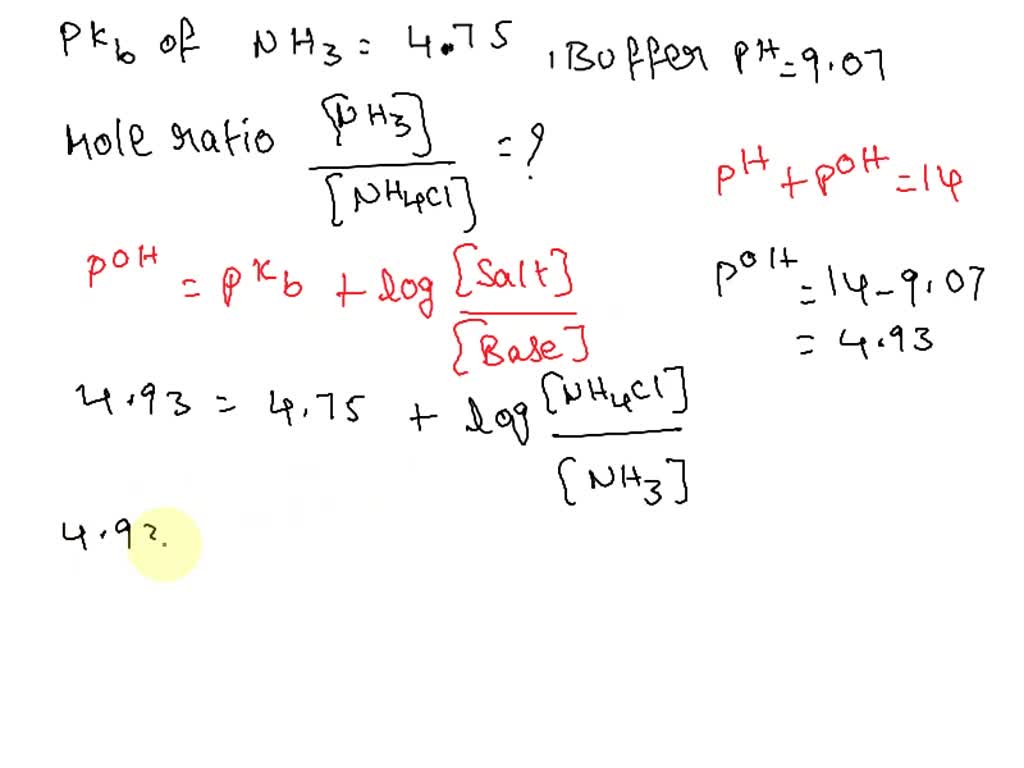 Pkb of NH3 = 4.75 , Buffer PH = 9.07
Mole ratio [NH3] / [NH4Cl] = ?
PH + POH = 14
POH = Pkb + log [Salt] / [Base]
POH = 14 - 9.07
= 4.93
4.93 = 4.75 + log [NH4Cl] / [NH3]
4.93